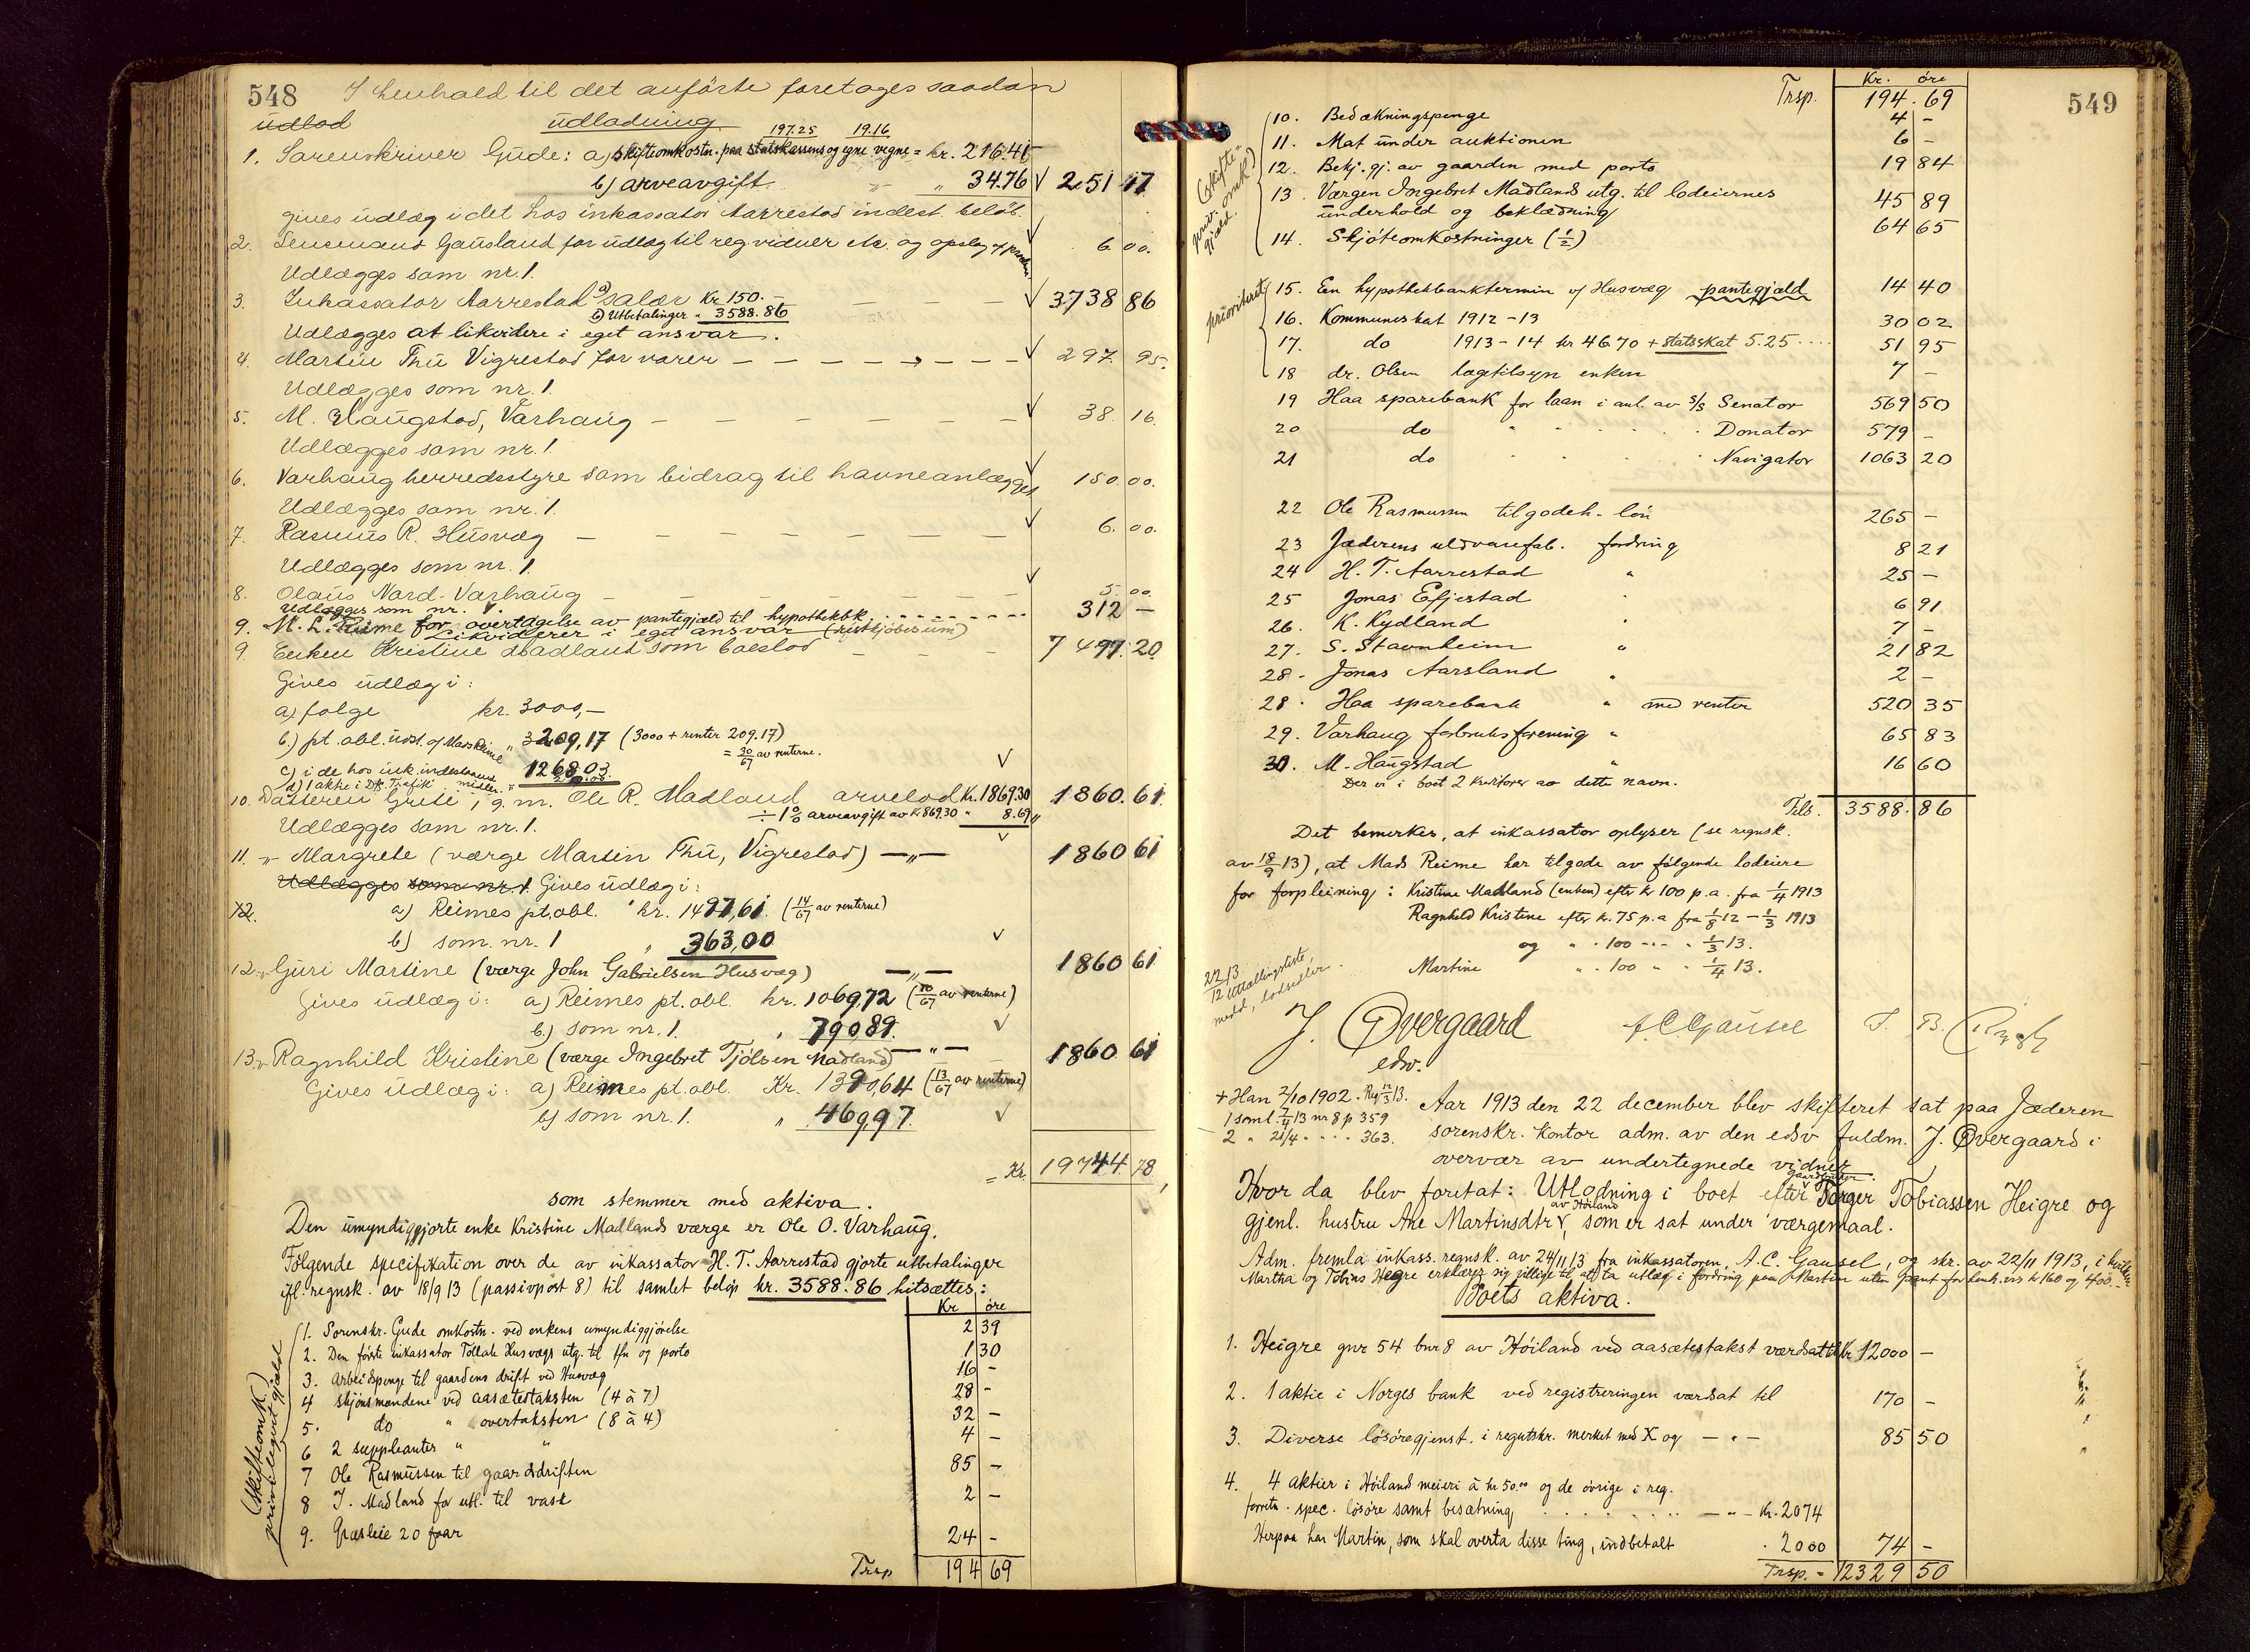 548
I henhold til det anførte foretages saadan
udlod
udlodning.
197.25 19.16
1. Sorenskriver Gude: a) skifteomkostn. paa statskassens og egne vegne = kr. 216.41
b) arveavgift " " 34.76 √ 251 17
gives udlæg i det hos inkassator Aarrestad indest. beløb.
2. Lensmand Gausland for udlæg til reg. vidner etc. og opslag af proclam. √ 6. 00.
Udlægges som nr. 1.
3. Inkassator Aarrestad a) salær Kr 150.- — — — √ 3738 86
b) Utbetalinger " 3588.86
Udlægges at likvidere i eget ansvar.
4. Martin Thu Vigrestad for varer — — — — — — √ 297. 95.
Udlægges som nr. 1.
5. M. Haugstad, Varhaug — — — — — — √ 38. 16.
Udlægges som nr. 1.
6. Varhaug herredsstyre som bidrag til havneanlægget √ 150. 00.
Udlægges som nr. 1.
7. Rasmus R. Husvæg — — — — — — √ 6. 00.
Udlægges som nr. 1.
8. Olaus Nord-Varhaug — — — — — — √ 5. 00.
Udlægges som nr. 1.
9. M. L. Reime for overtagelse av pantegjæld til hypothekbk. . . . . . . . 312 —
Likviderer i eget ansvar
9. Enken Kristine Madland som boeslod — — — 7 497. 20.
Gives udlæg i:
a) følge kr. 3000,—
b.) pt. obl. udst. af Mads Reime " 3209,17 (3000 + renter 209.17)
= 30/67 av renterne.
c) i de hos ink. indestaaende midler. " 1268,03 √
d) 1 aktie i D/S. Trafik
10. Datteren Grete, g. m. Ole R. Madland arvelod Kr. 1869.30 1860. 61.
÷ 1% arveavgift av Kr 869.30 " 8.69
Udlægges som nr. 1.
√
11. " Margrete (værge Martin Thu, Vigrestad) —"— 1860 61
Udlægges som nr. 1. Gives udlæg i:
12. a) Reimes pt. obl. kr. 1497,61. (14/67 av renterne)
b) som. nr. 1 " 363,00 √
12. " Guri Martine (værge John Gabrielsen Husvæg) —"— 1860 61
Gives udlæg i: a) Reimes pt. obl. kr. 1069,72 (10/67 av renterne)
b.) som nr. 1. " 790,89. √
13. " Ragnhild Kristine (værge Ingebret Tjølsen Madland) —"— 1860 61
Gives udlæg i: a) Reimes pt. obl. Kr. 1390,64 (13/67 av renterne)
b) som nr. 1. " 469,97. √
= Kr. 19744. 78
som stemmer med aktiva.
Den umyndiggjorte enke Kristine Madlands værge er Ole O. Varhaug.
Følgende specifikation over de av inkassator H. T. Aarrestad gjorte utbetalinger
ifl. regnsk. av 18/9 13 (passivpost 8) til samlet beløp kr. 3588.86 hitsættes:
Kr øre
(skifteomk.) privilegert gjæld
1. Sorenskr. Gude omkostn. ved enkens umyndiggjørelse 2 39
2. Den første inkassator Tollak Husvægs utg. til tlfn og porto 1 30
3. Arbeidspenge til gaardens drift ved Husvæg 16 -
4 skjønsmændene ved aasætestaksten (4 à 7) 28 -
5. do " overtaksten (8 à 4) 32 —
6 2 suppleanter " " 4 —
7 Ole Rasmussen til gaardsdriften 85 —
8 I. Madland for utl. til vask 2 —
9. Græsleie 20 faar 24 —
Trsp 194 69
549
Kr. øre
Trsp. 194. 69
(skifte- omk.) priv. gjæld.
10. Bedækningspenge 4 —
11. Mat under auktionen 6 —
12. Bekj. gj. av gaarden med porto 19 84
13. Værgen Ingebret Madlands utg. til lodeiernes
underhold og beklædning 45 89
14. Skjøteomkostninger (1/2) 64 65
prioritert
15. En hypothekbanktermin af Husvæg pantegjæld 14 40
16. Kommuneskat 1912-13 30 02
17. do 1913-14 kr 46.70 + statsskat 5.25 . . . . 51 95
18 dr. Olsen lægetilsyn enken 7 —
19 Haa sparebank for laan i anl. av s/s Senator 569 50
20 do " " " " Donator 579 —
21 do " " " " Navigator 1063 20
22 Ole Rasmussen tilgodeh. løn 265 —
23 Jæderens uldvarefab. fordring 8 21
24 H. T. Aarrestad " 25 —
25 Jonas Efjestad " 6 91
26. K. Kydland " 7 —
27. S. Stavnheim " 21 82
28 - Jonas Aarsland " 2 —
28. Haa sparebank " med renter 520 35
29. Varhaug forbruksforening " 65 83
30. M. Haugstad " 16 60
Der er i boet 2 kreditorer av dette navn.
Tils. 3588. 86
Det bemerkes, at inkassator oplyser (se regnsk.
av 18/9 13), at Mads Reime har tilgode av følgende lodeiere
for forpleining: Kristine Madland (enken) efter kr 100 p. a. fra 1/4 1913
Ragnhild Kristine efter kr. 75 p. a fra 1/8 12 – 1/3 1913
og " " 100 " " " 1/3 13.
Martine " " 100 " " 1/4 13.
22/12 13 Uttællingsliste, medd. lodsedler.
J. Øvergaard
edsv.
A C Gausel
+ Han 2/10 1902. Reg 12/3 13.
1 saml. 7/4 13 nr 8 p 359
2 " 21/4 " " " 363.
Aar 1913 den 22 december blev skifteret sat paa Jæderen
sorenskr. kontor adm. av den edsv fuldm. J. Øvergaard i
overvær av undertegnede vidner.
Hvor da blev foretat: Utlodning i boet efter gaardbruker Torger Tobiassen Heigre og
gjenl. hustru Ane Martinsdtr av Høiland, som er sat under værgemaal.
Adm. fremla inkass. regnsk. av 24/11 13 fra inkassatoren, A. C. Gausel, og skr. av 22/11 1913, i hvilken
Martha og Tobias Heigre erklærer sig villige til at ta utlæg i fordring paa Martin uten pant for henh.vis kr 160 og 400.-
Boets aktiva.
1. Heigre gnr 54 bnr 8 av Høiland ved aasætestakst værdsat til kr 12000 —
2. 1 aktie i Norges bank ved registreringen værdsat til 170 —
3. Diverse løsøregjenst. i regutskr. merket med X og — " — 85 50
4. 4 aktier i Høiland meieri à kr 50.00 og de øvrige i reg.
forretn. spec. løsøre samt besætning . . . . . . . . — " — Kr. 2074
Herpaa har Martin, som skal overta disse ting, indbetalt " 2000 74 —
Trsp. = 12329 50